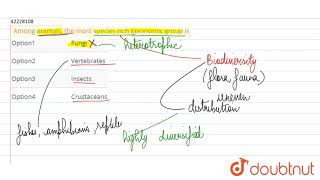 42228108
Among animals, the most species rich taxonomic group is
Option1 Fungi X heterotrophic
Option2 Vertebrates
Option3 Insects
Option4 Crustaceans
Biodiversity
(flora, fauna)
uneven
distribution
fishes, amphibians, reptile
highly diversified
doubtnut